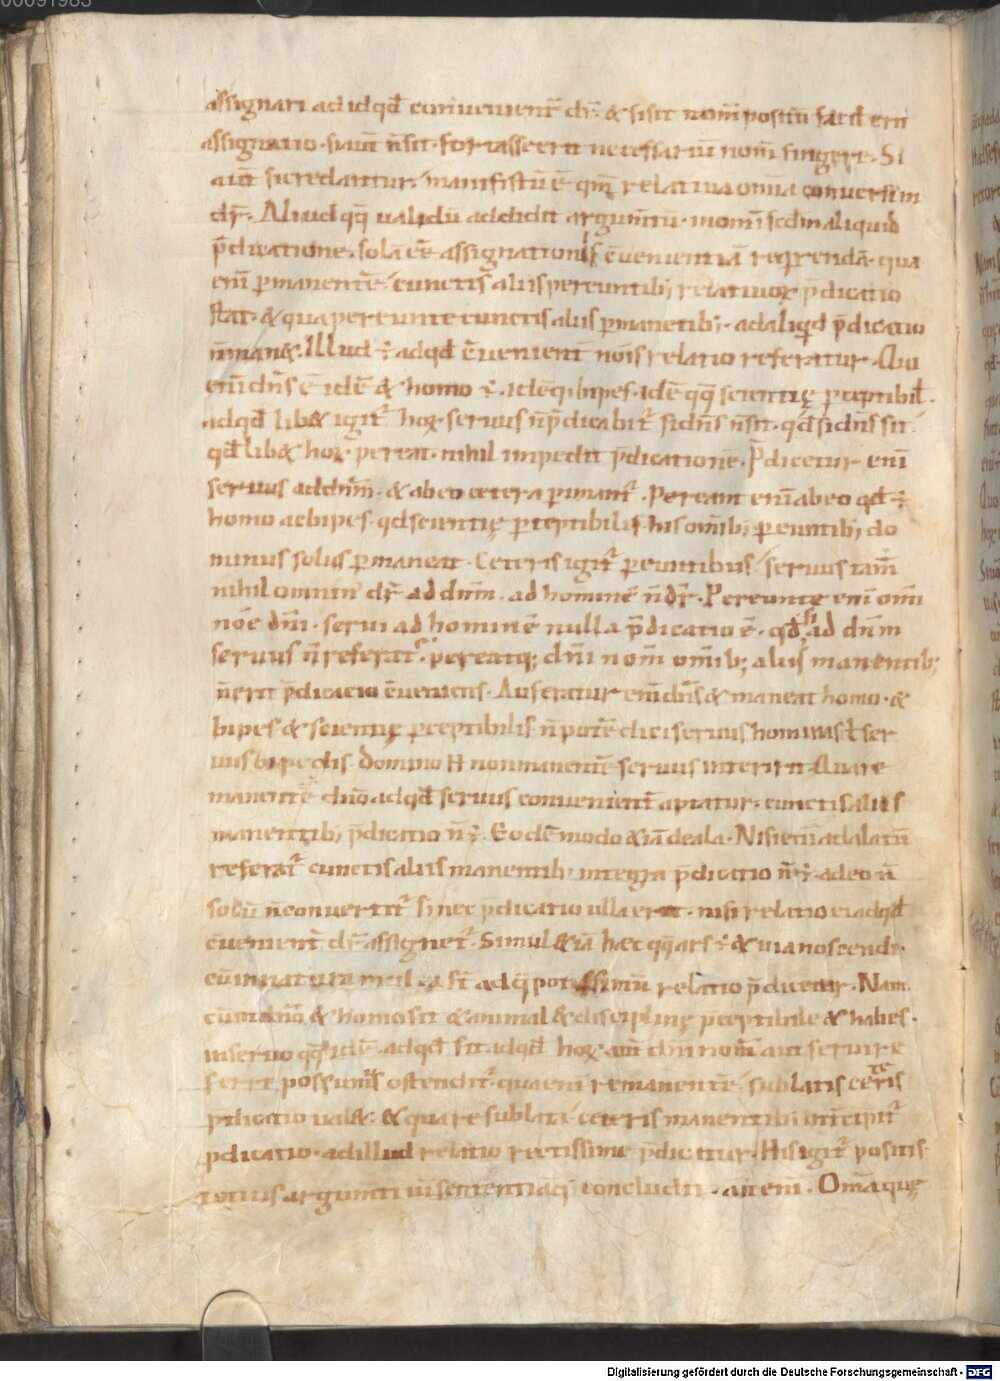 assignari ad id qđ conuenient̄ dr̄ · & si sit nom̄ positū facil erit
assignatio · si aut̄ n̄ sit · fortasse erit necessariū nom̄ fingere · Si
aut̄ sic reddantur · manifestū ē qm̄ relatiua om̄a conuersim
dr̄ · Aliud qq̨ ualidū addidit argum̄tū · in om̄i scdm aliquid
p̄dicatione · solā eē assignationis c̄uenientiā req̇rendā · qua
enī p̱manente cunctis aliis pereuntib; relatiuoꝝ p̄dicatio
stat · & qua pereunte cunctis aliis p̱manētib; · ad aliqđ p̄dicatio
n̄ man& · Illud ÷ ad qđ c̄uenient̄ nom̄s relatio referatur · Quo
enī dn̄s ē idē & homo ÷ · idē q̇ bipes · idē qq̨ scientię p̱ceptibil ·
ad qđ lib& igit̄ hoꝝ seruus n̄ p̄dicabit̄ si dn̄s n̄ sit · qđ si dn̄s sit
qđ lib& hoꝝ pereat · nihil impedit p̄dicationē · P̄dicetur enī
seruus ad dn̄m · & ab eo cetera p̱imant̄ · Pereant enī ab eo qđ ÷
homo ac bipes · qđ scientię p̱ceptibilis · his om̄ib; p̱euntib; do
minus solus p̱maneat · Ceteris igit̄ p̱euntibus seruus tam̄
nihil omnin' dr̄ ad dn̄m · ad hominē n̄ dr̄ · Pereunte enī om̄i
nōe dn̄i · serui ad hominē nulla p̄dicatio ē · qđ si ad dn̄m
seruus n̄ referat̄ · pereatq; dn̄i nom̄ om̄ib; aliis manentib;
n̄ erit p̄dicacio c̄ueniens · Auferatur enī dn̄s & maneat homo · &
bipes & scientię p̱ceptibilis n̄ potē dici seruus hominis ł ser
uus bipedis · Domino H non manente seruus interiit · Quare
manente dn̄o · ad qđ seruus conuenient̄ aptatur · cunctis aliis
manentib; p̄dicatio n̄ ÷ · Eodē modo & iā de ala · Nisi enī ad alatū
referat̄ cunctis aliis manentib; integra p̄dicatio n̄ ÷ · adeo n̄
solū n̄ conuertit̄ · s; nec p̄dicatio ulla erit · nisi relatio ei ad qđ
c̄uenient̄ dr̄ assignet̄ · Simul & iā hæc qq̨ ars ÷ & uia noscendi ·
cū in natura multa st̄ ad q̨ potissimū relatio p̄dicetur · Nam
cū in dn̄o & homo sit & animal & disciplinę p̱ceptibile & habes ·
in seruo qq̨ idē · ad qđ sit · ad qđ hoꝝ aut̄ dn̄i nom̄ aut seruire
ferri possumus ostendit̄ · qua enī remanente sublatis ceteris
p̄dicatio ual& · & qua re sublata ceteris manentib; int̄cipit̄
p̄dicatio · ad illud relatio rectissime p̄dicatur · His igit̄ positis ·
totius argum̄ti uī sententiāq; concludit · ait enī · Om̄a quę